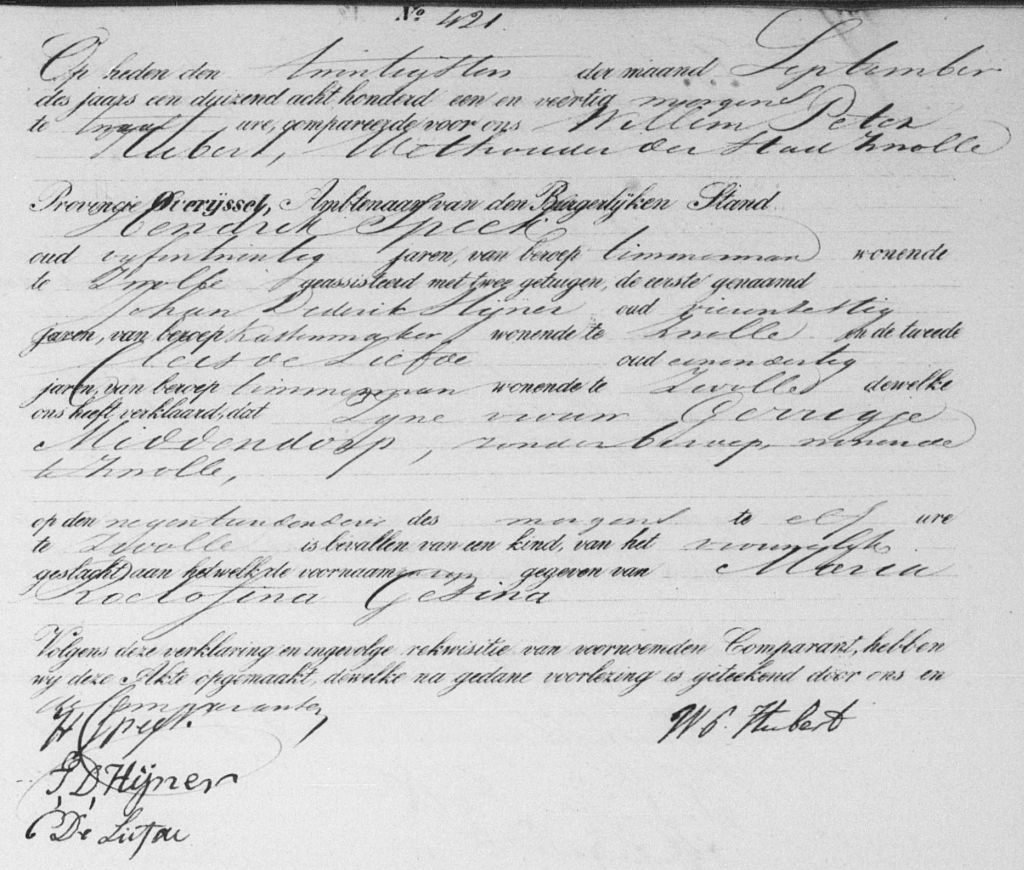 No 421.
Op heden den twintigsten der maand September
des jaars een duizend acht honderd een en veertig morgens
te twaalf ure, compareerde voor ons Willem Peter
Hubert, Wethouder der Stad Zwolle
Provingie Overijssel, Ambtenaar van den Burgerlijken Stand
Hendrik Speck
oud vyfentwintig jaren, van beroep timmerman wonende
te Zwolle geassisteerd met twee getuigen, de eerste genaamd
Johan Diderik Hijner oud vierentestig
jaren, van beroep kastenmaker wonende te Zwolle en de tweede
Clees de Liefde oud eenendertig
jaren, van beroep timmerman wonende te Zwolle dewelke
ons heeft verklaard, dat Zyne vrouw Gerrigje
Middendorp, zonder beroep, wonende
te Zwolle,
op den negentienden dezer des morgens te elf ure
te Zwolle is bevallen van een kind, van het vrouwelyk
geslacht, aan hetwelk de voornaam en zyn gegeven van Maria
Roelofina Gesina
Volgens deze verklaring en ingevolge rekwisitie van voornoemden Comparant, hebben
wy deze Akte opgemaakt, dewelke na gedane voorlezing is geteekend door ons en
de Comparanten,
H Speck. W P. Hubert
J D Hijner
C De Liefde